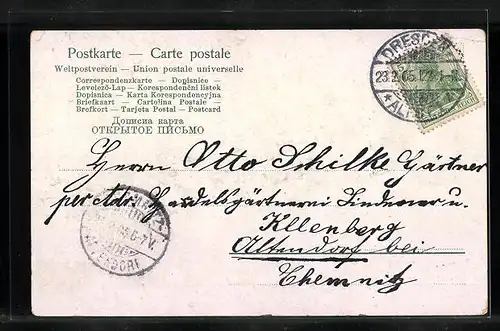 Postkarte — Carte postale
Weltpostverein — Union postale universelle
Correspondenzkarte — Dopisnice —
Levelező-Lap — Korespondenční lístek
Dopisnica — Karta Korespondencyjna
Briefkaart — Cartolina Postale —
Brefkort — Tarjeta Postal — Postcard
Дописна карта
ОТКРЫТОЕ ПИСЬМО
DRESDEN
Herrn Otto Schilke Gärtner
per Adr. Handelsgärtnerei Lindener u.
Kllenberg
Altendorf bei
Chemnitz